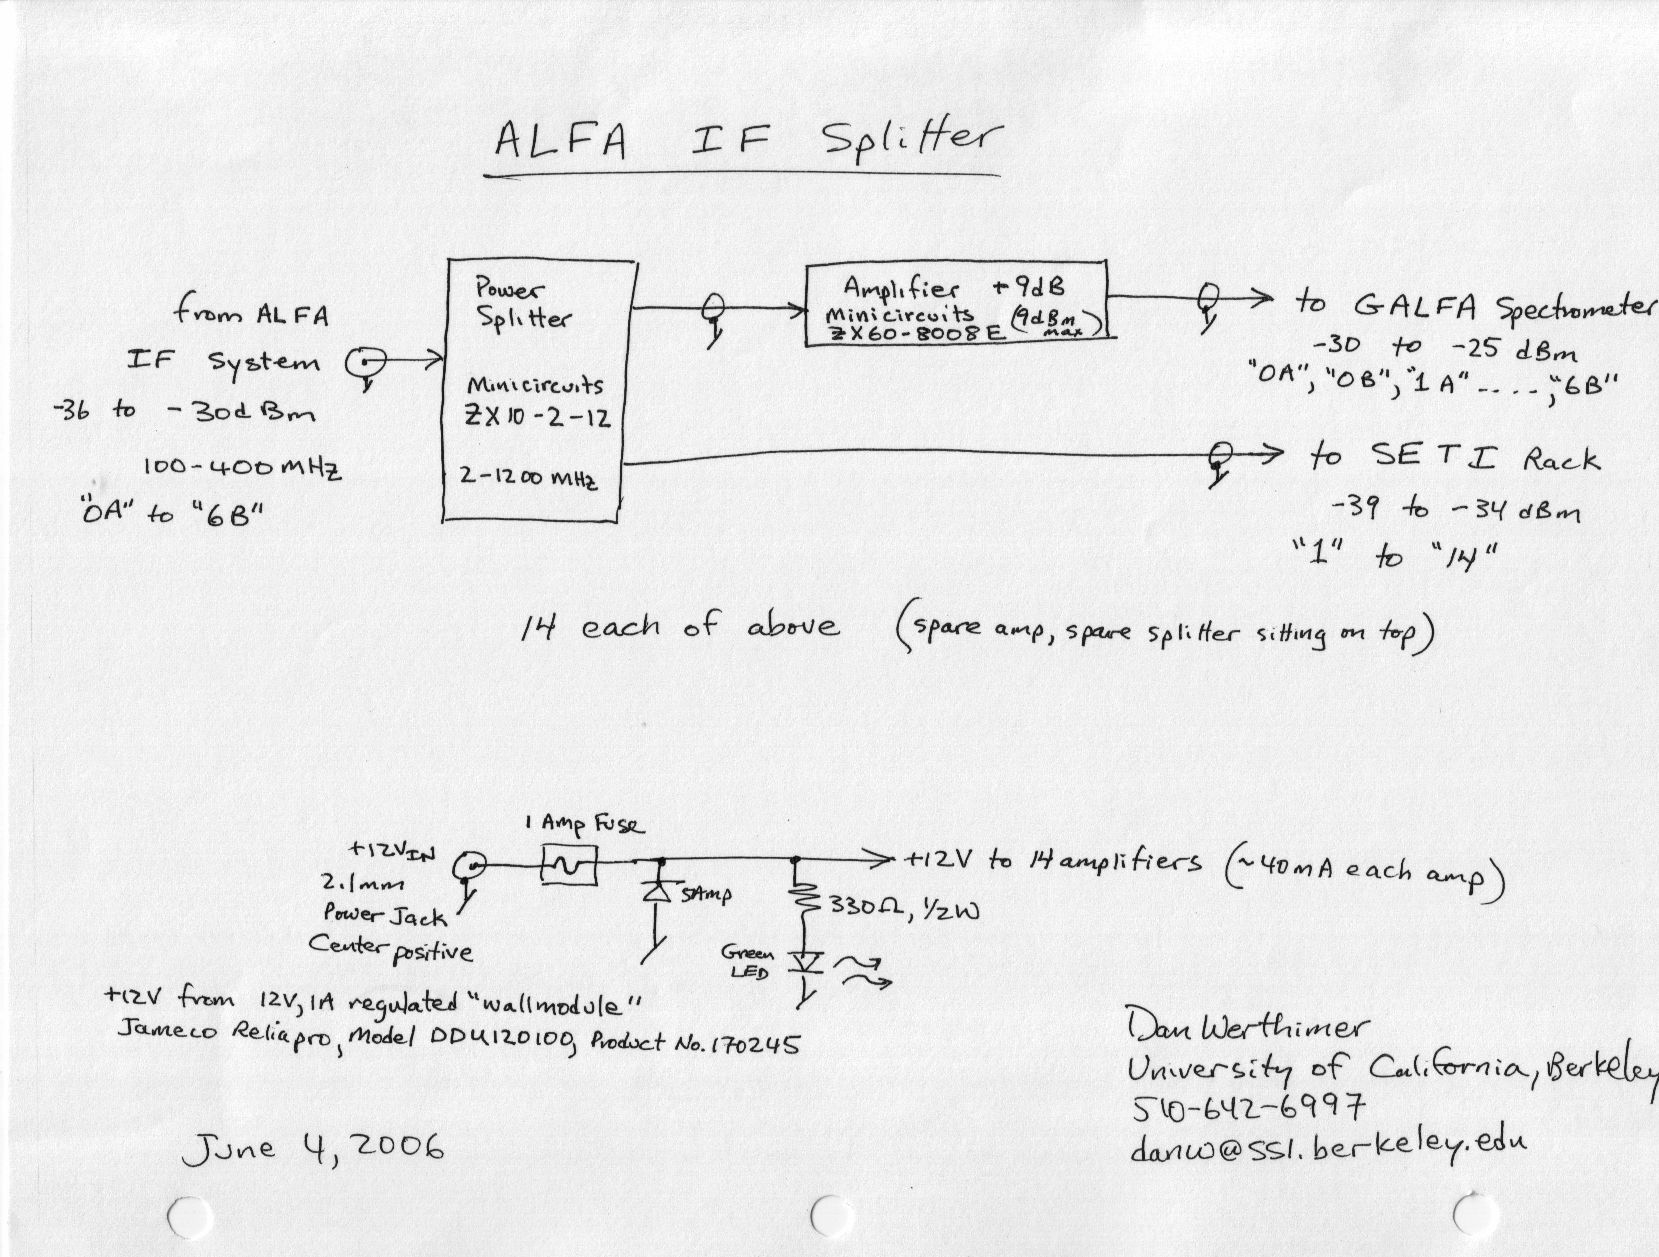 ALFA IF Splitter
from ALFA
IF System
-36 to -30dBm
100-400 MHz
"0A" to "6B"
Power
Splitter
Minicircuits
ZX10-2-12
2-1200 MHz
Amplifier +9dB
Minicircuits (9dBm max)
ZX60-8008E
to GALFA Spectrometer
-30 to -25 dBm
"0A", "0B", "1A" ----, "6B"
to SETI Rack
-39 to -34 dBm
"1" to "14"
14 each of above (spare amp, spare splitter sitting on top)
1 Amp Fuse
+12VIN
2.1mm
Power Jack
Center positive
5Amp
330Ω, 1/2W
Green
LED
+12V to 14 amplifiers (~40mA each amp)
+12V from 12V, 1A regulated "wallmodule"
Jameco Reliapro, Model DDU120100, Product No. 170245
Dan Werthimer
University of California, Berkeley
510-642-6997
danw@ssl.berkeley.edu
June 4, 2006